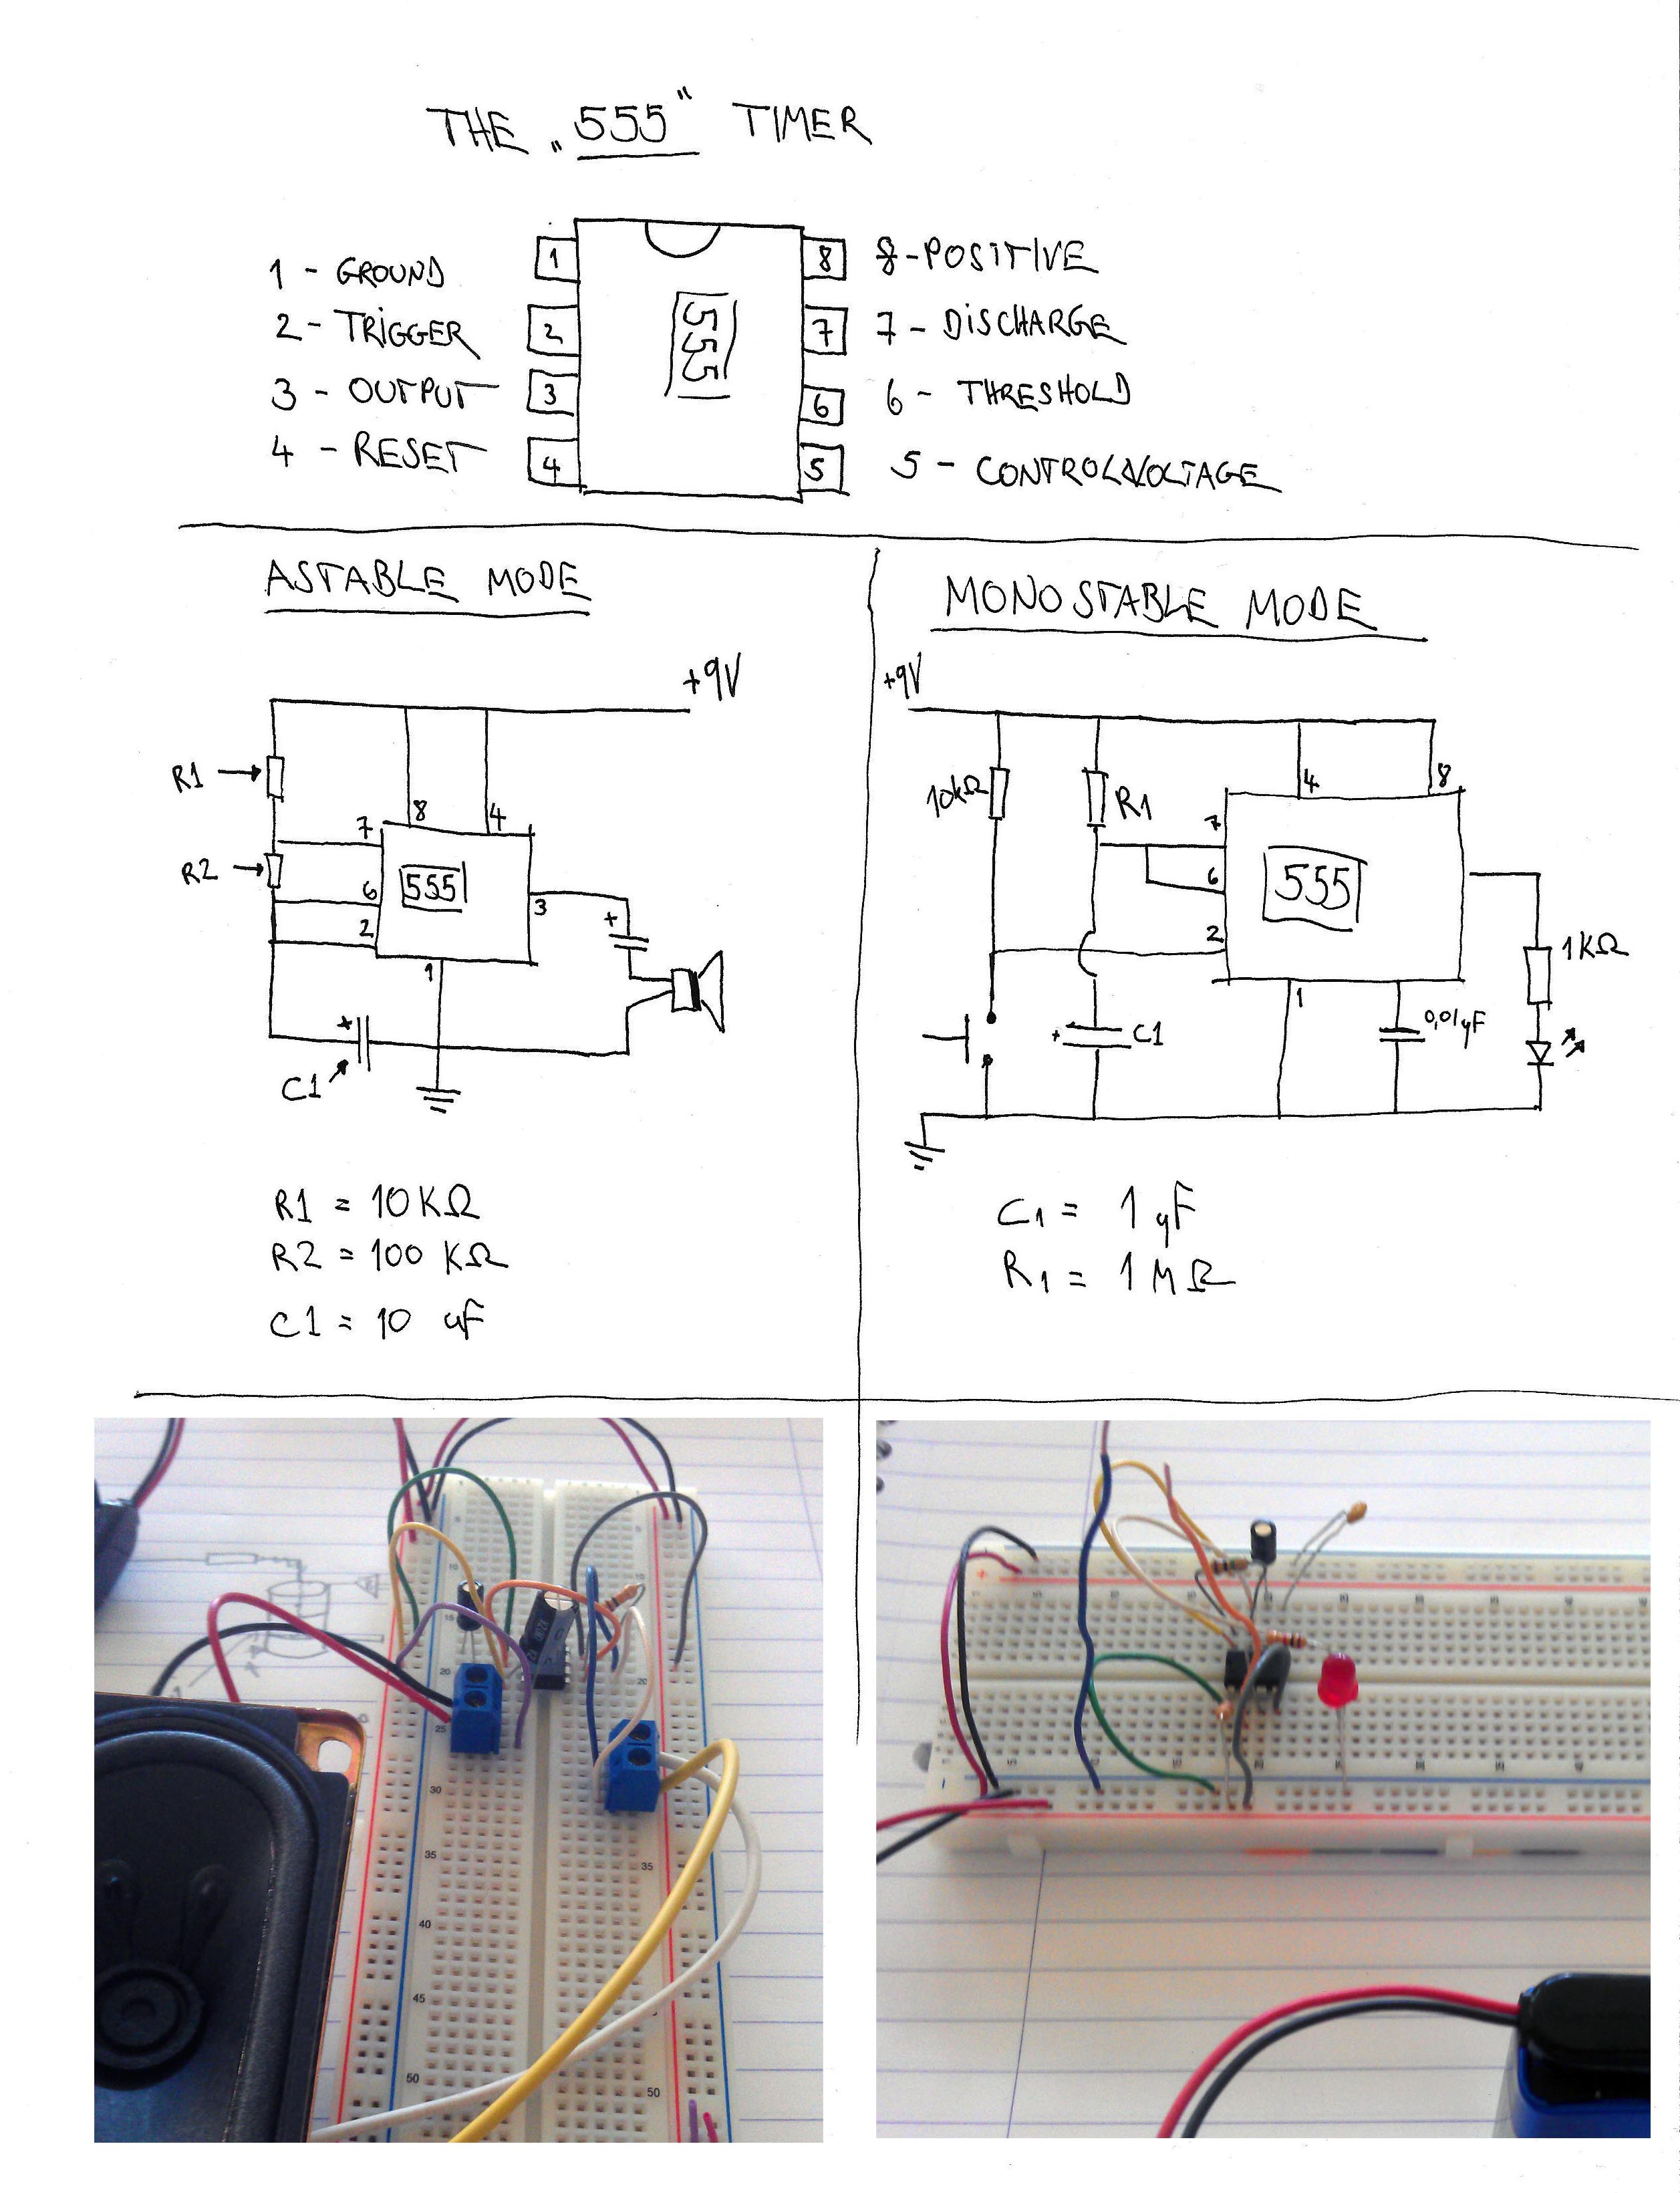 THE „555“ TIMER
1 - GROUND
2 - TRIGGER
3 - OUTPUT
4 - RESET
1
2
3
4
555
8
7
6
5
8-POSITIVE
7 - DISCHARGE
6 - THRESHOLD
5 - CONTROL VOLTAGE
ASTABLE MODE
+9V
R1
R2
7
8
4
6
2
555
3
+
1
+
C1
R1 = 10KΩ
R2 = 100 KΩ
C1 = 10 uF
MONOSTABLE MODE
+9V
10kΩ
R1
4
8
7
6
2
555
1KΩ
1
0,01µF
+
C1
C1 = 1 µF
R1 = 1MΩ
5
10
15
20
25
30
35
40
45
50
15
20
35
50